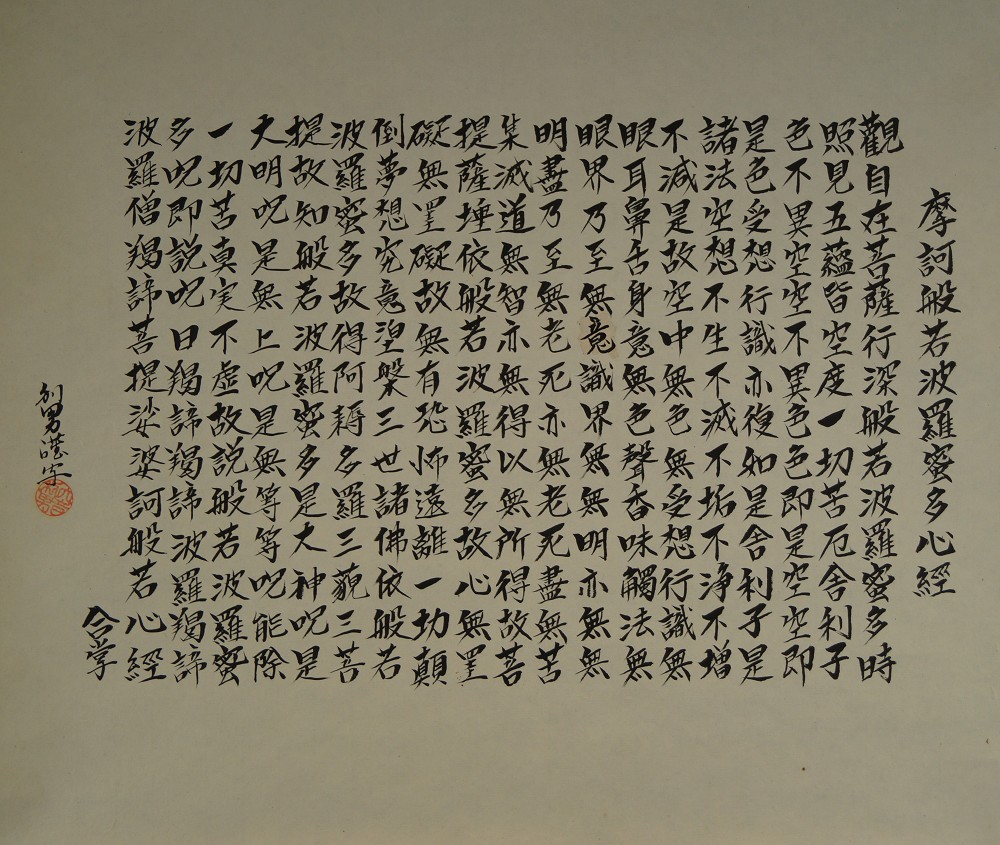 摩訶般若波羅蜜多心經
觀自在菩薩行深般若波羅蜜多時
照見五蘊皆空度一切苦厄舍利子
色不異空空不異色色即是空空即
是色受想行識亦復如是舍利子是
諸法空想不生不滅不垢不淨不增
不減是故空中無色無受想行識無
眼耳鼻舌身意無色聲香味觸法無
眼界乃至無意識界無無明亦無無
明盡乃至無老死亦無老死盡無苦
集滅道無智亦無得以無所得故菩
提薩埵依般若波羅蜜多故心無罣
礙無罣礙故無有恐怖遠離一切顛
倒夢想究竟涅槃三世諸佛依般若
波羅蜜多故得阿耨多羅三藐三菩
提故知般若波羅蜜多是大神呪是
大明呪是無上呪是無等等呪能除
一切苦真実不虛故説般若波羅蜜
多呪即説呪曰羯諦羯諦波羅羯諦
波羅僧羯諦菩提娑婆訶般若心經
合掌